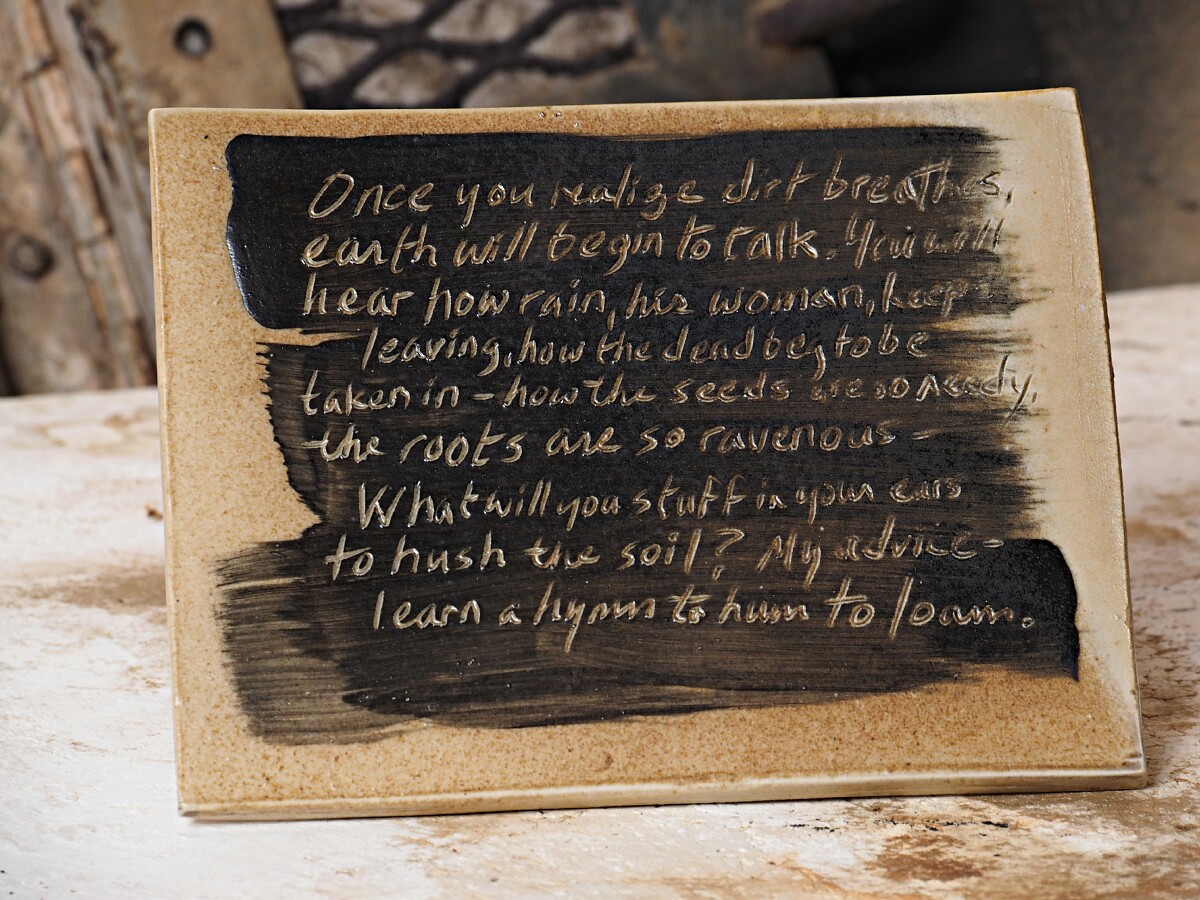 Once you realize dirt breathes,
earth will begin to talk. You will
hear how rain, his woman, keeps
leaving, how the dead beg to be
taken in - how the seeds are so needy,
the roots are so ravenous -
What will you stuff in your ears
to hush the soil? My advice -
learn a hymn to hum to loam.